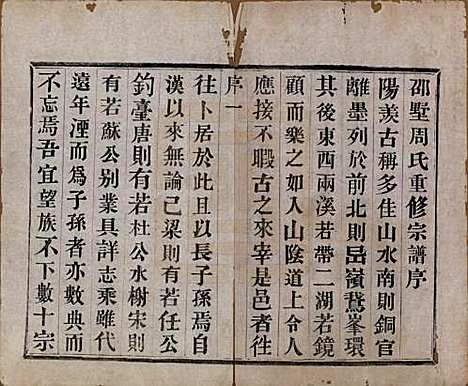 邵墅周氏重修宗譜序
陽羨古稱多佳山水南則銅官
離墨列於前北則嶺鵞峯環
其後東西兩溪若帶二湖若鏡
顧而樂之如入山陰道上令人
應接不暇古之來宰是邑者徃
序一
往卜居於此且以長子孫焉自
漢以來無論已梁則有若任公
釣臺唐則有若杜公水榭宋則
有若蘇公別業具詳志乘雖代
遠年湮而為子孫者亦數典而
不忘焉吾宜望族不下數十宗